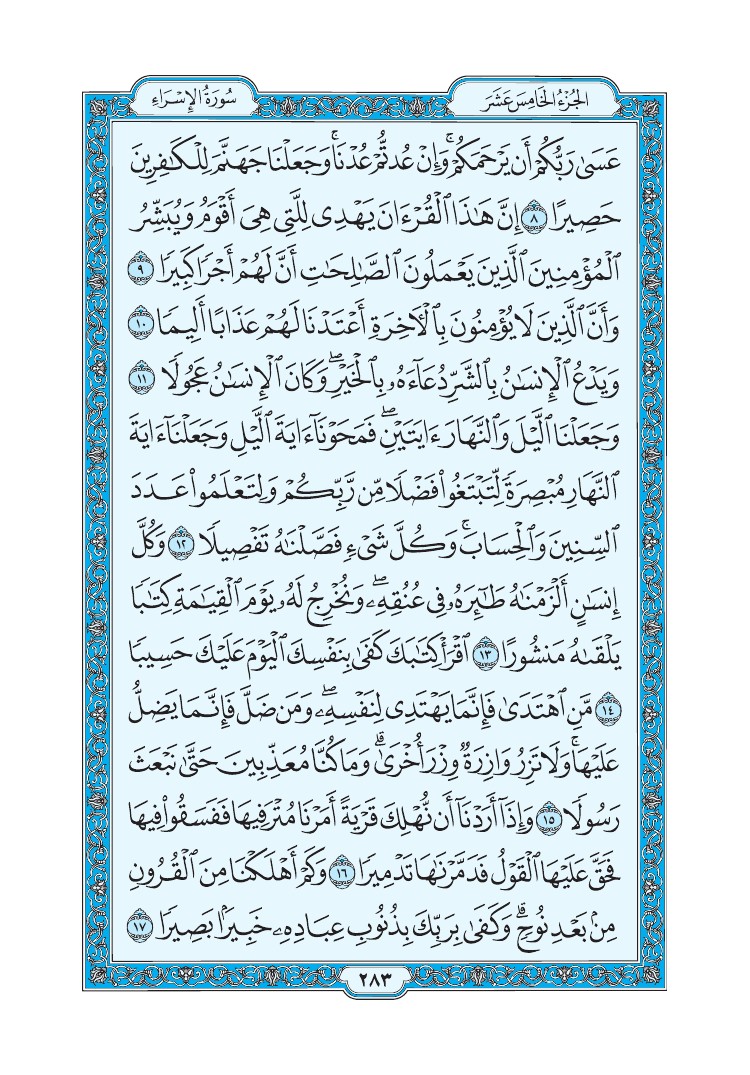 سُورَةُ الإِسْرَاءِ
الجُزْءُ الخَامِسَ عَشَرَ
عَسَىٰ رَبُّكُمْ أَن يَرْحَمَكُمْ ۚ وَإِنْ عُدتُّمْ عُدْنَا ۚ وَجَعَلْنَا جَهَنَّمَ لِلْكَٰفِرِينَ
حَصِيرًا ٨ إِنَّ هَٰذَا ٱلْقُرْءَانَ يَهْدِى لِلَّتِى هِىَ أَقْوَمُ وَيُبَشِّرُ
ٱلْمُؤْمِنِينَ ٱلَّذِينَ يَعْمَلُونَ ٱلصَّٰلِحَٰتِ أَنَّ لَهُمْ أَجْرًا كَبِيرًا ٩
وَأَنَّ ٱلَّذِينَ لَا يُؤْمِنُونَ بِٱلْءَاخِرَةِ أَعْتَدْنَا لَهُمْ عَذَابًا أَلِيمًا ١٠
وَيَدْعُ ٱلْإِنسَٰنُ بِٱلشَّرِّ دُعَآءَهُۥ بِٱلْخَيْرِ ۖ وَكَانَ ٱلْإِنسَٰنُ عَجُولًا ١١
وَجَعَلْنَا ٱلَّيْلَ وَٱلنَّهَارَ ءَايَتَيْنِ ۖ فَمَحَوْنَآ ءَايَةَ ٱلَّيْلِ وَجَعَلْنَآ ءَايَةَ
ٱلنَّهَارِ مُبْصِرَةً لِّتَبْتَغُوا۟ فَضْلًا مِّن رَّبِّكُمْ وَلِتَعْلَمُوا۟ عَدَدَ
ٱلسِّنِينَ وَٱلْحِسَابَ ۚ وَكُلَّ شَىْءٍ فَصَّلْنَٰهُ تَفْصِيلًا ١٢ وَكُلَّ
إِنسَٰنٍ أَلْزَمْنَٰهُ طَٰٓئِرَهُۥ فِى عُنُقِهِۦ ۖ وَنُخْرِجُ لَهُۥ يَوْمَ ٱلْقِيَٰمَةِ كِتَٰبًا
يَلْقَىٰهُ مَنشُورًا ١٣ ٱقْرَأْ كِتَٰبَكَ كَفَىٰ بِنَفْسِكَ ٱلْيَوْمَ عَلَيْكَ حَسِيبًا
١٤ مَّنِ ٱهْتَدَىٰ فَإِنَّمَا يَهْتَدِى لِنَفْسِهِۦ ۖ وَمَن ضَلَّ فَإِنَّمَا يَضِلُّ
عَلَيْهَا ۚ وَلَا تَزِرُ وَازِرَةٌ وِزْرَ أُخْرَىٰ ۗ وَمَا كُنَّا مُعَذِّبِينَ حَتَّىٰ نَبْعَثَ
رَسُولًا ١٥ وَإِذَآ أَرَدْنَآ أَن نُّهْلِكَ قَرْيَةً أَمَرْنَا مُتْرَفِيهَا فَفَسَقُوا۟ فِيهَا
فَحَقَّ عَلَيْهَا ٱلْقَوْلُ فَدَمَّرْنَٰهَا تَدْمِيرًا ١٦ وَكَمْ أَهْلَكْنَا مِنَ ٱلْقُرُونِ
مِنۢ بَعْدِ نُوحٍ ۗ وَكَفَىٰ بِرَبِّكَ بِذُنُوبِ عِبَادِهِۦ خَبِيرًۢا بَصِيرًا ١٧
٢٨٣